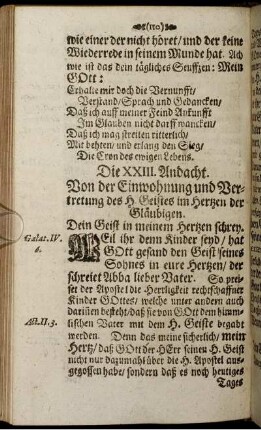 (110)
wie einer der nicht höret/ und der keine
Wiederrede in seinem Munde hat. Ach
wie ist das dein tägliches Seuffzen: Mein
GOtt:
Erhalte mir doch die Vernunfft/
Verstand/ Sprach und Gedancken/
Daß ich auff meiner Feind Ankunfft
Im Glauben nicht darff wancken/
Daß ich mag streiten ritterlich/
Mit behten/ und erlang den Sieg/
Die Cron des ewigen Lebens.
Die XXIII. Andacht.
Von der Einwohnung und Ver-
tretung des H. Geistes im Hertzen der
Gläubigen.
Dein Geist in meinem Hertzen schrey.
Galat. IV.
6.
Weil ihr denn Kinder seyd/ hat
GOtt gesand den Geist seines
Sohnes in eure Hertzen/ der
schreiet Abba lieber Vater. So prei-
set der Apostel die Herrligkeit rechtschaffner
Kinder GOttes/ welche unter andern auch
darinen bestehet/ daß sie von GOtt dem himm-
Act. II. 3.
lischen Vater mit dem H. Geiste begabt
werden. Denn das meine sicherlich/ mein
Hertz/ daß GOtt der HErr seinen H. Geist
nicht nur dazumahl über die H. Apostel aus-
gegossen habe/ sondern daß es noch heutiges
Tages